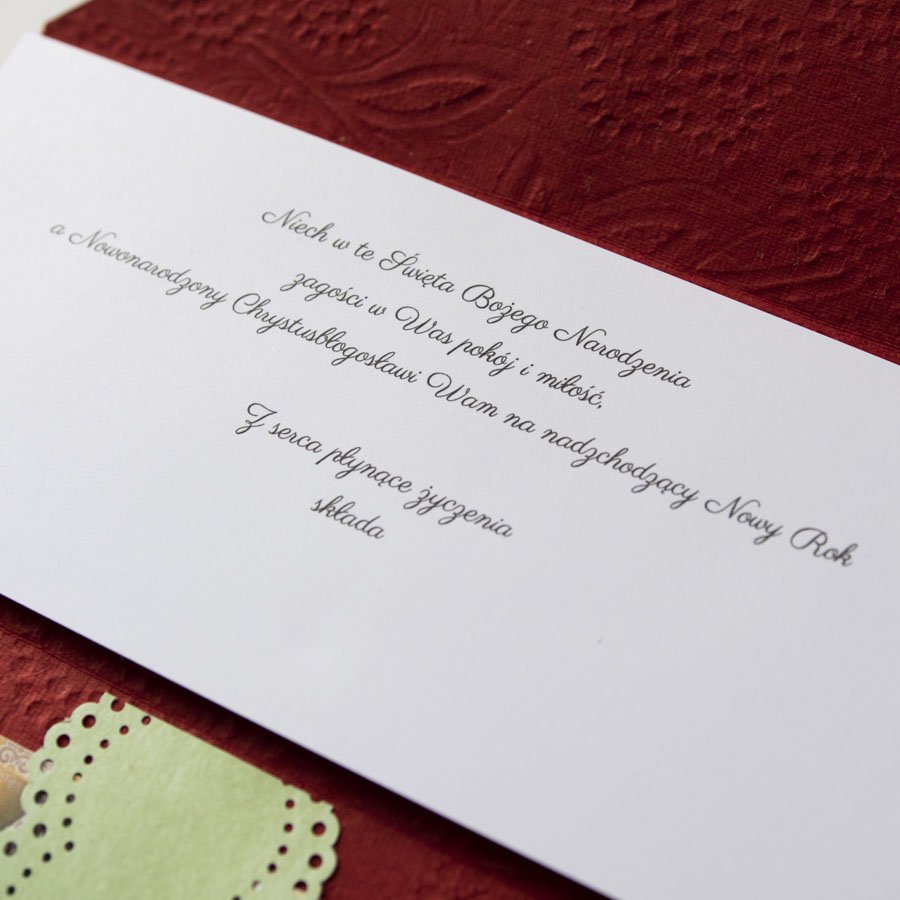 Niech w te Święta Bożego Narodzenia
zagości w Was pokój i miłość,
a Nowonarodzony Chrystusbłogosławi Wam na nadzchodzący Nowy Rok
Z serca płynące życzenia
składa